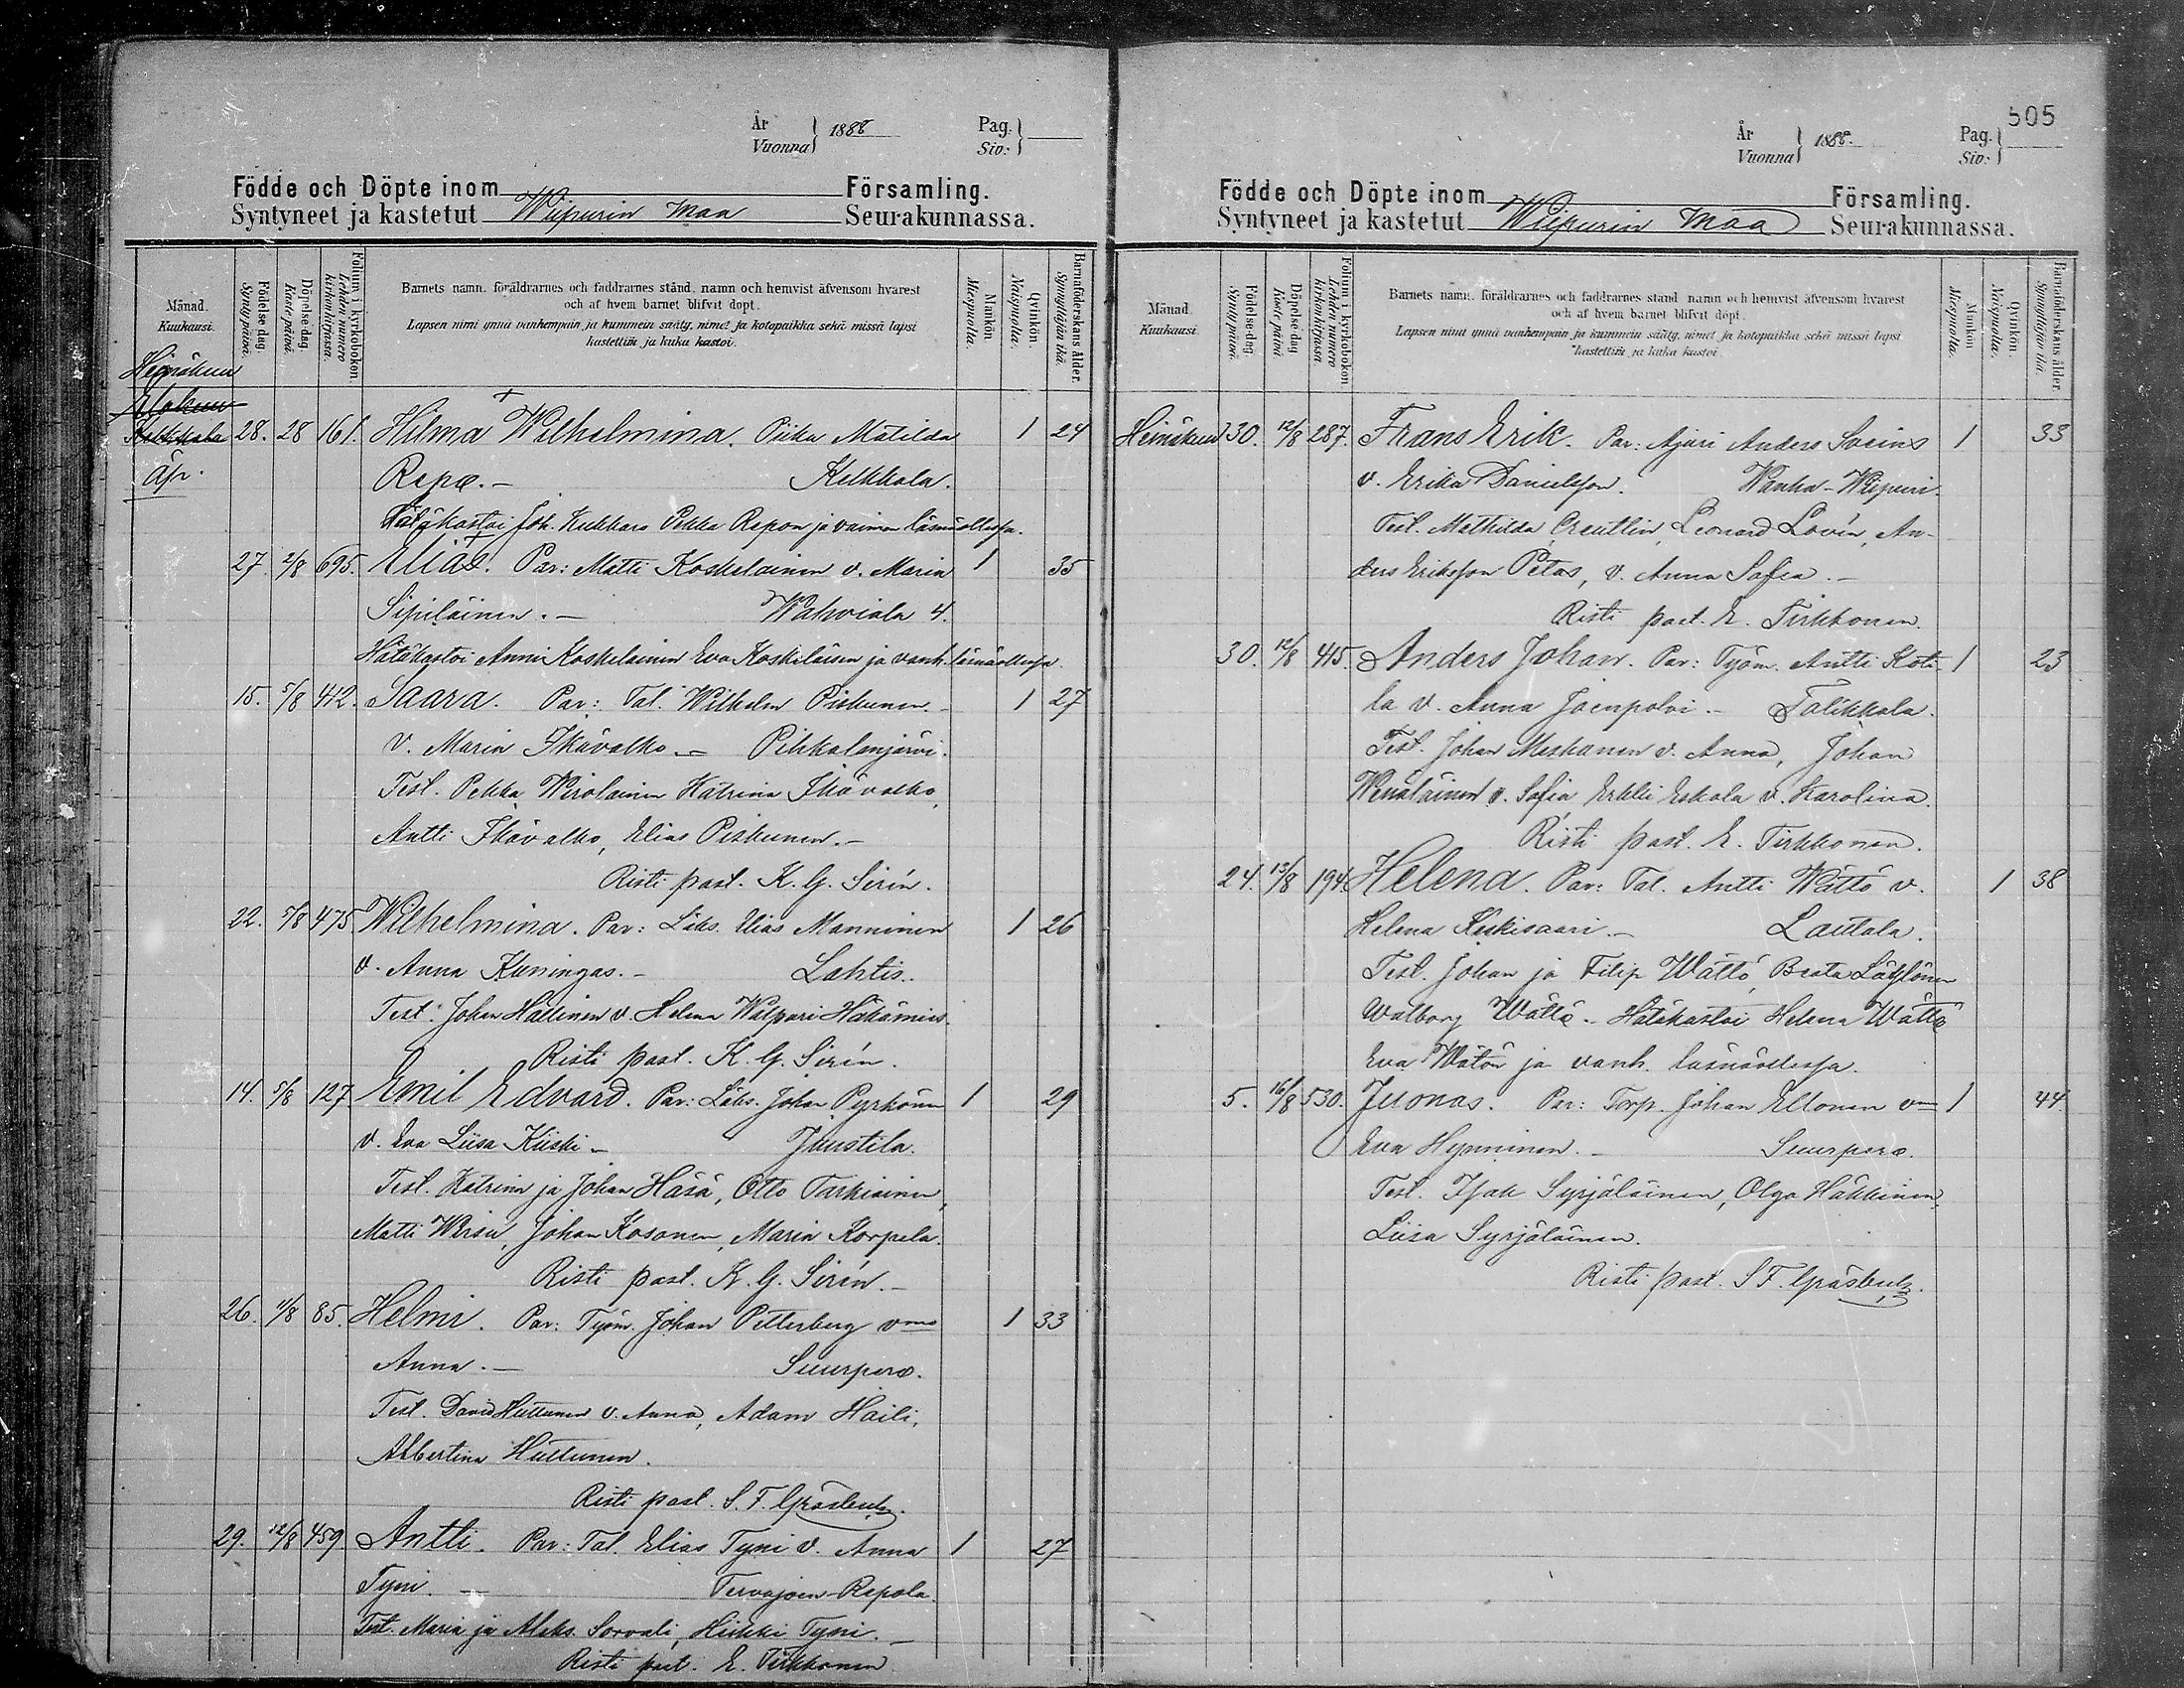 År
Vuonna } 1888
Pag.
Siv: }
Födde och Döpte inom Församling.
Syntyneet ja kastetut Wiipurin maa Seurakunnassa.
Månad. Kuukausi.
Födelse-dag. Synty päivä.
Döpelse-dag. Kaste päivä.
Folium i kyrkobokon. Lehden numero kirkon kirjassa.
Barnets namn, föräldrarnes och faddrarnes stånd, namn och hemvist äfvensom hvarest
och af hvem barnet blifvit döpt.
Lapsen nimi ynnä vanhempain ja kummein sääty, nimet ja kotopaikka sekä missä lapsi
kastettiin ja kuka kastoi.
Mankön. Miespuolta.
Qvinkön. Naispuolta.
Barnaföderskans ålder. Synnyttäjän ikä.
Heinäkuu
Elokuu
Kelkkala 28. 28 161. Hilma Wilhelmina. Piika Matilda 1 24
Äp. Repo. – Kelkkala.
Hätäkastoi Joh. Kukkara Pekka Repon ja vaimon läsnäollessa.
27. 2/8 695. Elias. Par: Matti Koskelainen v. Maria 1 35
Sipiläinen. – Wahviala 4.
Hätäkastoi Anni Koskelainen Eva Koskelaisen ja vanh. läsnäollessa.
15. 5/8 412. Saara. Par: Tal. Wilhelm Piskunen 1 27
v. Maria Ikävalko – Pihkalanjärvi.
Test. Pekka Wirolainen Katrina Ikävalko,
Antti Ikävalko, Elias Piskunen. –
Risti past. K. G. Sirén.
22. 5/8 475. Wilhelmina. Par: Läks. Elias Manninen 1 26
v. Anna Kuningas. – Lahtis.
Test. Johan Hallinen v. Helena Walpuri Häkämies.
Risti past. K. G. Sirén.
14. 5/8 127 Emil Edvard. Par: Läks. Johan Pyrhönen 1 29
v. Eva Liisa Kiiski – Juustila.
Test. Katrina ja Johan Häsä, Otto Tarkiainen,
Matti Wirsu, Johan Kosonen, Maria Korpela.
Risti past. K. G. Sirén. –
26. 11/8 85. Helmi. Par: Työm. Johan Petterberg vmo 1 33
Anna. – Suurpero.
Test. David Huttunen v. Anna, Adam Haili,
Albertina Huttunen.
Risti past. S. F. Gråsbeck.
29. 12/8 459 Antti. Par: Tal. Elias Tyni v. Anna 1 27
Tyni. – Tervajoen-Repola.
Test. Maria ja Aleks. Sorvali, Heikki Tyni. –
Risti past. E. Tirkkonen
505
År
Vuonna } 1888.
Pag.
Siv: }
Födde och Döpte inom Församling.
Syntyneet ja kastetut Wiipurin maa Seurakunnassa.
Månad. Kuukausi.
Födelse-dag. Synty päivä.
Döpelse-dag. Kaste päivä.
Folium i kyrkobokon. Lehden numero kirkon kirjassa.
Barnets namn, föräldrarnes och faddrarnes stånd, namn och hemvist äfvensom hvarest
och af hvem barnet blifvit döpt.
Lapsen nimi ynnä vanhempain ja kummein sääty, nimet ja kotopaikka sekä missä lapsi
kastettiin ja kuka kastoi.
Mankön. Miespuolta.
Qvinkön. Naispuolta.
Barnaföderskans ålder. Synnyttäjän ikä.
Heinäkuu 30. 12/8 287. Frans Erik. Par: Ajuri Anders Socins 1 33
v. Erika Danielsson. Wanha-Wiipuri.
Test. Mathilda Creutlin, Leonard Lovén, An-
ders Eriksson Petas, v. Anna Sofia. –
Risti past. E. Tirkkonen.
30. 12/8 415. Anders Johan. Par: Työm. Antti Koti- 1 23
la v. Anna Joenpolvi – Talikkala.
Test. Johan Meskanen v. Anna, Johan
Wenäläinen v. Sofia Erkki Eskola v. Karolina.
Risti past. E. Tirkkonen.
24. 13/8 194. Helena. Par: Tal. Antti Wättö v. 1 38
Helena Kukisaari. – Lautala.
Test. Johan ja Filip Wättö, Beata Löyhönen
Walborg Wättö. – Hätäkastoi Helena Wättö
Eva Wätön ja vanh. läsnäollessa.
5. 16/8 530. Juonas. Par: Torp. Johan Ellonen vmo 1 44.
Eva Hynninen. – Suurpero.
Test. Isak Syrjäläinen, Olga Häkkinen,
Liisa Syrjäläinen.
Risti past. S F. Gråsbeck.